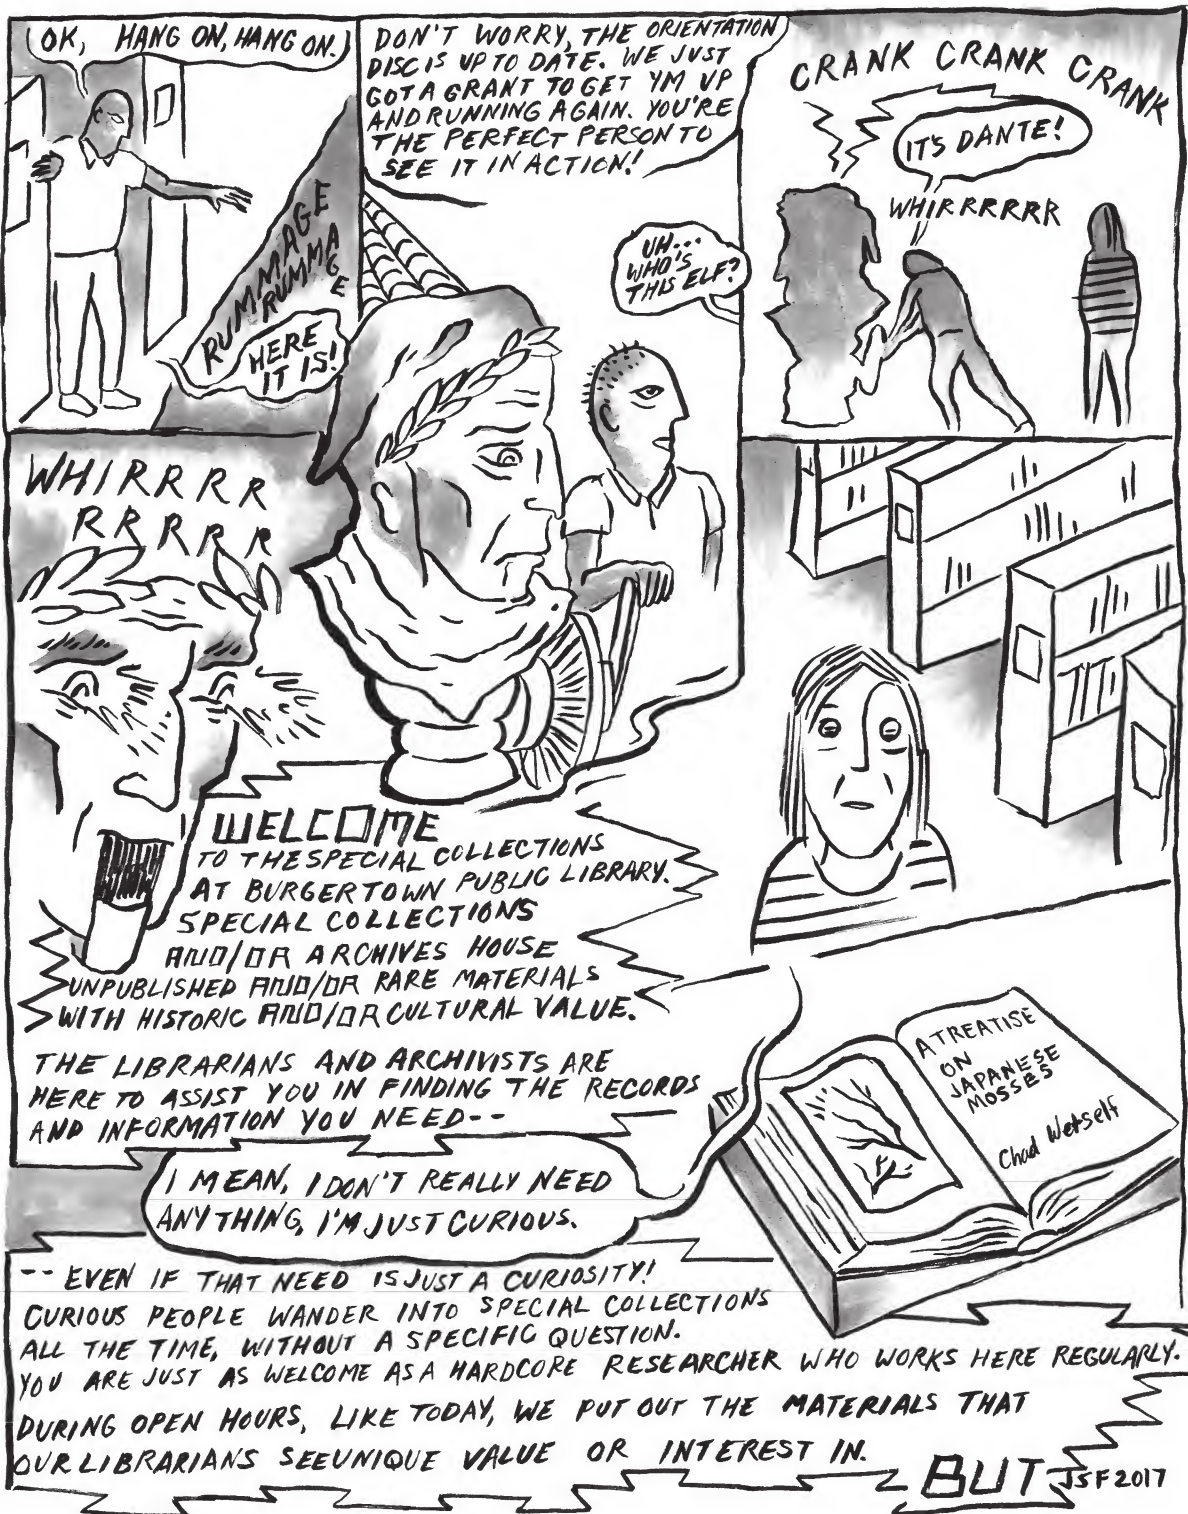 OK, HANG ON, HANG ON.
RUMMAGE
RUMMAGE
HERE
IT IS!
DON'T WORRY, THE ORIENTATION
DISC IS UP TO DATE. WE JUST
GOT A GRANT TO GET 'YM UP
AND RUNNING AGAIN. YOU'RE
THE PERFECT PERSON TO
SEE IT IN ACTION!
UH...
WHO'S
THIS ELF?
CRANK CRANK CRANK
IT'S DANTE!
WHIRRRRRR
WHIRRRR
RRRRR
WELCOME
TO THE SPECIAL COLLECTIONS
AT BURGERTOWN PUBLIC LIBRARY.
SPECIAL COLLECTIONS
AND/OR ARCHIVES HOUSE
UNPUBLISHED AND/OR RARE MATERIALS
WITH HISTORIC AND/OR CULTURAL VALUE.
THE LIBRARIANS AND ARCHIVISTS ARE
HERE TO ASSIST YOU IN FINDING THE RECORDS
AND INFORMATION YOU NEED--
I MEAN, I DON'T REALLY NEED
ANYTHING, I'M JUST CURIOUS.
A TREATISE
ON
JAPANESE
MOSSES
Chad Wetself
-- EVEN IF THAT NEED IS JUST A CURIOSITY!
CURIOUS PEOPLE WANDER INTO SPECIAL COLLECTIONS
ALL THE TIME, WITHOUT A SPECIFIC QUESTION.
YOU ARE JUST AS WELCOME AS A HARDCORE RESEARCHER WHO WORKS HERE REGULARLY.
DURING OPEN HOURS, LIKE TODAY, WE PUT OUT THE MATERIALS THAT
OUR LIBRARIANS SEE UNIQUE VALUE OR INTEREST IN.
BUT
JSF 2017